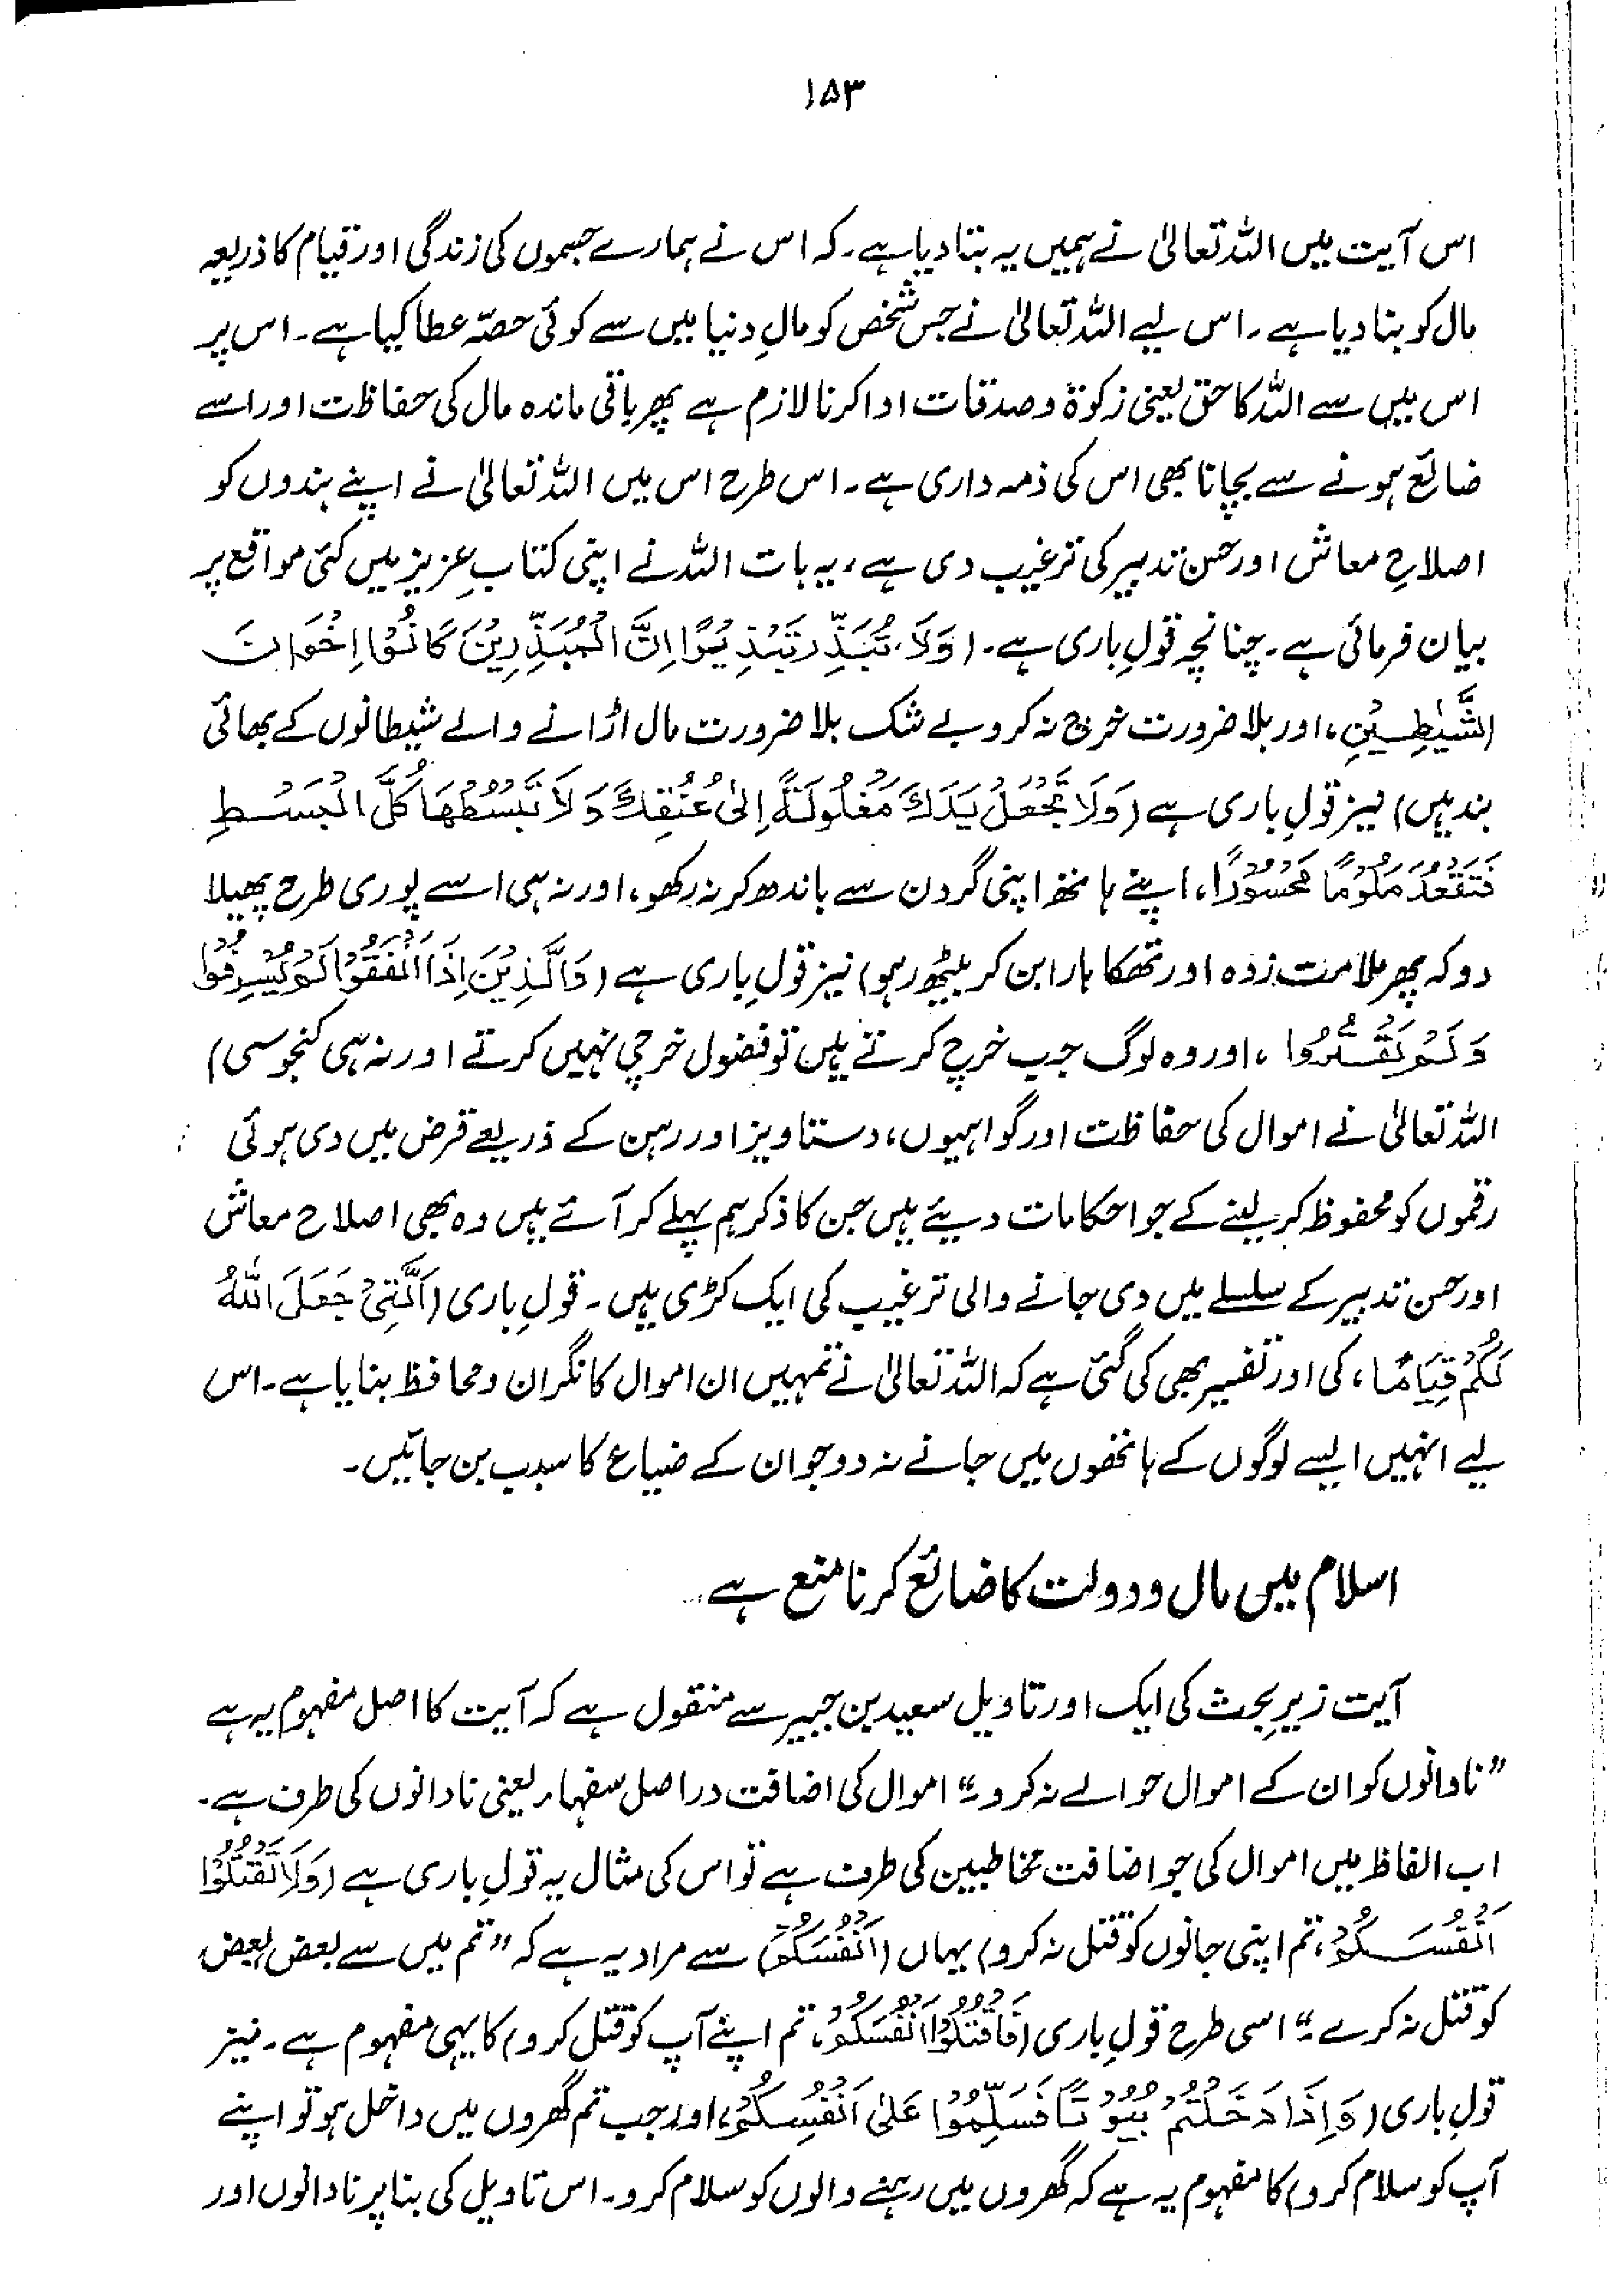 ۱۵۳
اس آیت میں اللہ تعالیٰ نے ہمیں یہ بتا دیا ہے۔ کہ اس نے ہمارے جسموں کی زندگی اور قیام کا ذریعہ
مال کو بنا دیا ہے۔ اس لیے اللہ تعالیٰ نے جس شخص کو مالِ دنیا میں سے کوئی حصّہ عطا کیا ہے۔ اس پر
اس میں سے اللہ کا حق یعنی زکوٰۃ و صدقات ادا کرنا لازم ہے پھر باقی ماندہ مال کی حفاظت اور اسے
ضائع ہونے سے بچانا بھی اس کی ذمہ داری ہے۔ اس طرح اس میں اللہ تعالیٰ نے اپنے بندوں کو
اصلاحِ معاش اور حسن تدبیر کی ترغیب دی ہے، یہ بات اللہ نے اپنی کتابِ عزیز میں کئی مواقع پر
بیان فرمائی ہے۔ چنانچہ قولِ باری ہے۔ (وَلَا تُبَذِّرْ تَبْذِيْرًا اِنَّ الْمُبَذِّرِيْنَ كَانُوْا اِخْوَانَ
الشَّيٰطِيْنِ، اور بلا ضرورت خرچ نہ کرو بے شک بلا ضرورت مال اڑانے والے شیطانوں کے بھائی
بند ہیں) نیز قولِ باری ہے (وَلَا تَجْعَلْ يَدَكَ مَغْلُوْلَةً اِلىٰ عُنُقِكَ وَلَا تَبْسُطْهَا كُلَّ الْبَسْطِ
فَتَقْعُدَ مَلُوْمًا مَحْسُوْرًا، اپنے ہاتھ اپنی گردن سے باندھ کر نہ رکھو، اور نہ ہی اسے پوری طرح پھیلا
دو کہ پھر ملامت زدہ اور تھکا ہارا بن کر بیٹھ رہو) نیز قولِ باری ہے (وَالَّذِيْنَ اِذَا اَنْفَقُوْا لَمْ يُسْرِفُوْا
وَلَمْ يَقْتُرُوا، اور وہ لوگ جب خرچ کرتے ہیں تو فضول خرچی نہیں کرتے اور نہ ہی کنجوسی)
اللہ تعالیٰ نے اموال کی حفاظت اور گواہیوں، دستاویز اور رہن کے ذریعے قرض میں دی ہوئی
رقموں کو محفوظ کر لینے کے جو احکامات دیئے ہیں جن کا ذکر ہم پہلے کر آئے ہیں وہ بھی اصلاح معاش
اور حسن تدبیر کے سلسلے میں دی جانے والی ترغیب کی ایک کڑی ہیں۔ قولِ باری (اَلَّتِيْ جَعَلَ اللهُ
لَكُمْ قِيَامًا، کی اور تفسیر بھی کی گئی ہے کہ اللہ تعالیٰ نے تمہیں ان اموال کا نگران و محافظ بنایا ہے۔ اس
لیے انہیں ایسے لوگوں کے ہاتھوں میں جانے نہ دو جو ان کے ضیاع کا سبب بن جائیں۔
اسلام میں مال و دولت کا ضائع کرنا منع ہے
آیت زیرِ بحث کی ایک اور تاویل سعید بن جبیر سے منقول ہے کہ آیت کا اصل مفہوم یہ ہے
”نادانوں کو ان کے اموال حوالے نہ کرو۔“ اموال کی اضافت دراصل سفہاء یعنی نادانوں کی طرف ہے۔
اب الفاظ میں اموال کی جو اضافت مخاطبین کی طرف ہے تو اس کی مثال یہ قولِ باری ہے (وَلَا تَقْتُلُوْا
اَنْفُسَكُمْ، تم اپنی جانوں کو قتل نہ کرو) یہاں (اَنْفُسَكُمْ) سے مراد یہ ہے کہ ”تم میں سے بعض بعض
کو قتل نہ کرے۔“ اسی طرح قولِ باری (فَاقْتُلُوْا اَنْفُسَكُمْ، تم اپنے آپ کو قتل کرو) کا یہی مفہوم ہے۔ نیز
قولِ باری (وَاِذَا دَخَلْتُمْ بُيُوْتًا فَسَلِّمُوْا عَلىٰ اَنْفُسِكُمْ، اور جب تم گھروں میں داخل ہو تو اپنے
آپ کو سلام کرو) کا مفہوم یہ ہے کہ گھروں میں رہنے والوں کو سلام کرو۔ اس تاویل کی بنا پر نادانوں اور